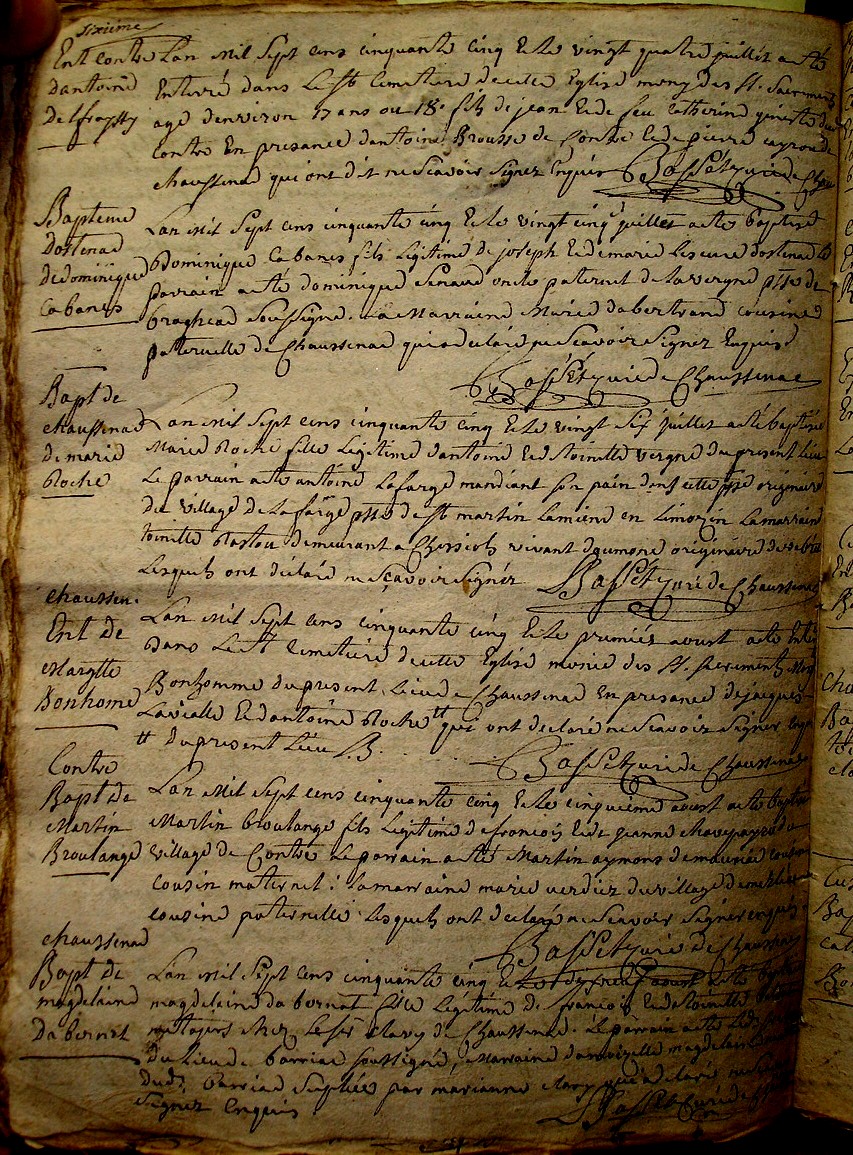 sixième
Ent contre
dantoine
delfraissy
Lan Mil Sept cens cinquante cinq Et le vingt quatre juillet a eté
Enterré dans le st Cemetiere de cette Eglise muny des st. Sacremens
agé denviron 17 ans ou 18. fils de jean Et de feu Catherine
contre En presance dantoine Brousse de Contre Et de pierre
chaussenac qui ont dit ne Scavoir Signer Enquis Basset curé de Chau
Bapteme
dostenac
de dominique
Cabanes
Lan Mil Sept cens cinquante cinq Et le vingt cinq juillet a eté baptisé
Dominique Cabanes fils Legitime de joseph Et de marie Lescure dostenac Le
parrain a eté dominique oncle paternel de Lavergne psse de
bragheac Soussigné. La Marraine Marie dabertrand cousine
paternelle de Chaussenac qui a declaré ne Scavoir Signer Enquise
Basset curé de Chaussenac
Bapt de
chaussenac
de marie
Roche
Lan Mil Sept cens cinquante cinq Et le vingt Six juillet a eté baptisée
Marie Roche fille Legitime dantoine Et de toinette vergne du present Lieu
Le parrain a eté antoine Lafarge mandiant Son pain dans cette psse originaire
du village de Lafarge psse de st martin Lamiene en Limozin La marraine
toinette Rastou demeurant a vivant daumone originaire de
Lesquels ont declaré ne Scavoir Signer Basset curé de Chaussenac
chaussen.
Ent de
Margtte
Bonhome
Lan Mil Sept cens cinquante cinq Et le premier aoust a eté Enter
Dans Le st Cemetiere de cette Eglise munie des st. Sacremens Marg
Bonhomme du present Lieu de Chaussenac En presance de jacques
Lavialle Et dantoine Roche tt qui ont declaré ne Scavoir Signer Enquis
tt du present Lieu B.
Basset curé de Chaussenac
Contre
Bapt de
Martin
Broulange
Lan Mil Sept cens cinquante cinq Et le cinquieme aoust a eté baptisé
Martin broulange fils Legitime de francois Et de jeanne
village de Contre Le parrain a eté Martin aymons de
cousin maternel: la marraine marie verdier du village
cousine paternelle Lesquels ont declaré ne Scavoir Signer enquis
Basset curé de Chaussenac
chaussenac
Bapt de
magdelaine
Dabernat
Lan Mil Sept cens cinquante cinq Et le aoust a eté baptisée
magdelaine dabernat fille Legitime de francois Et de toinette
metayers chez Le sr Clary de Chaussenac. Le parrain a eté
du Lieu de barriac soussigné, Marraine damoizelle magdelaine
dud. Barriac Suplée par marianne Clary qui a declaré ne
Signer Enquis Basset curé de